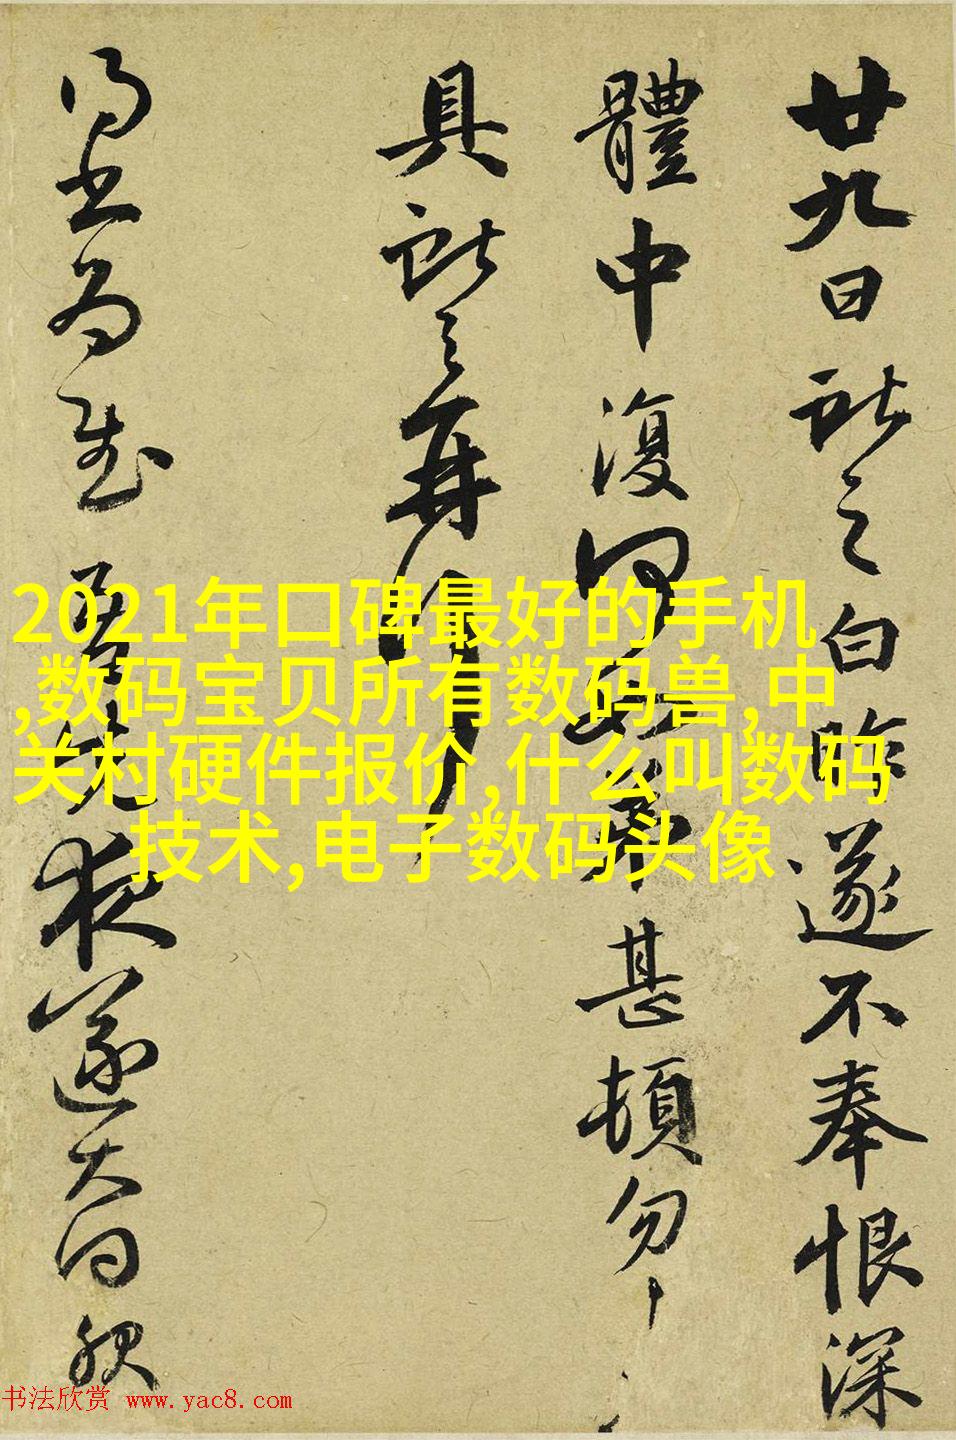 廿九日獻之白昨遂不奉恨深
體中復何如弟甚頓勿〻
具獻之再拜
書為慰吾夜遂大
2021年口碑最好的手机
,数码宝贝所有数码兽,中
关村硬件报价,什么叫数码
技术,电子数码头像
书法欣赏 www.yac8.com